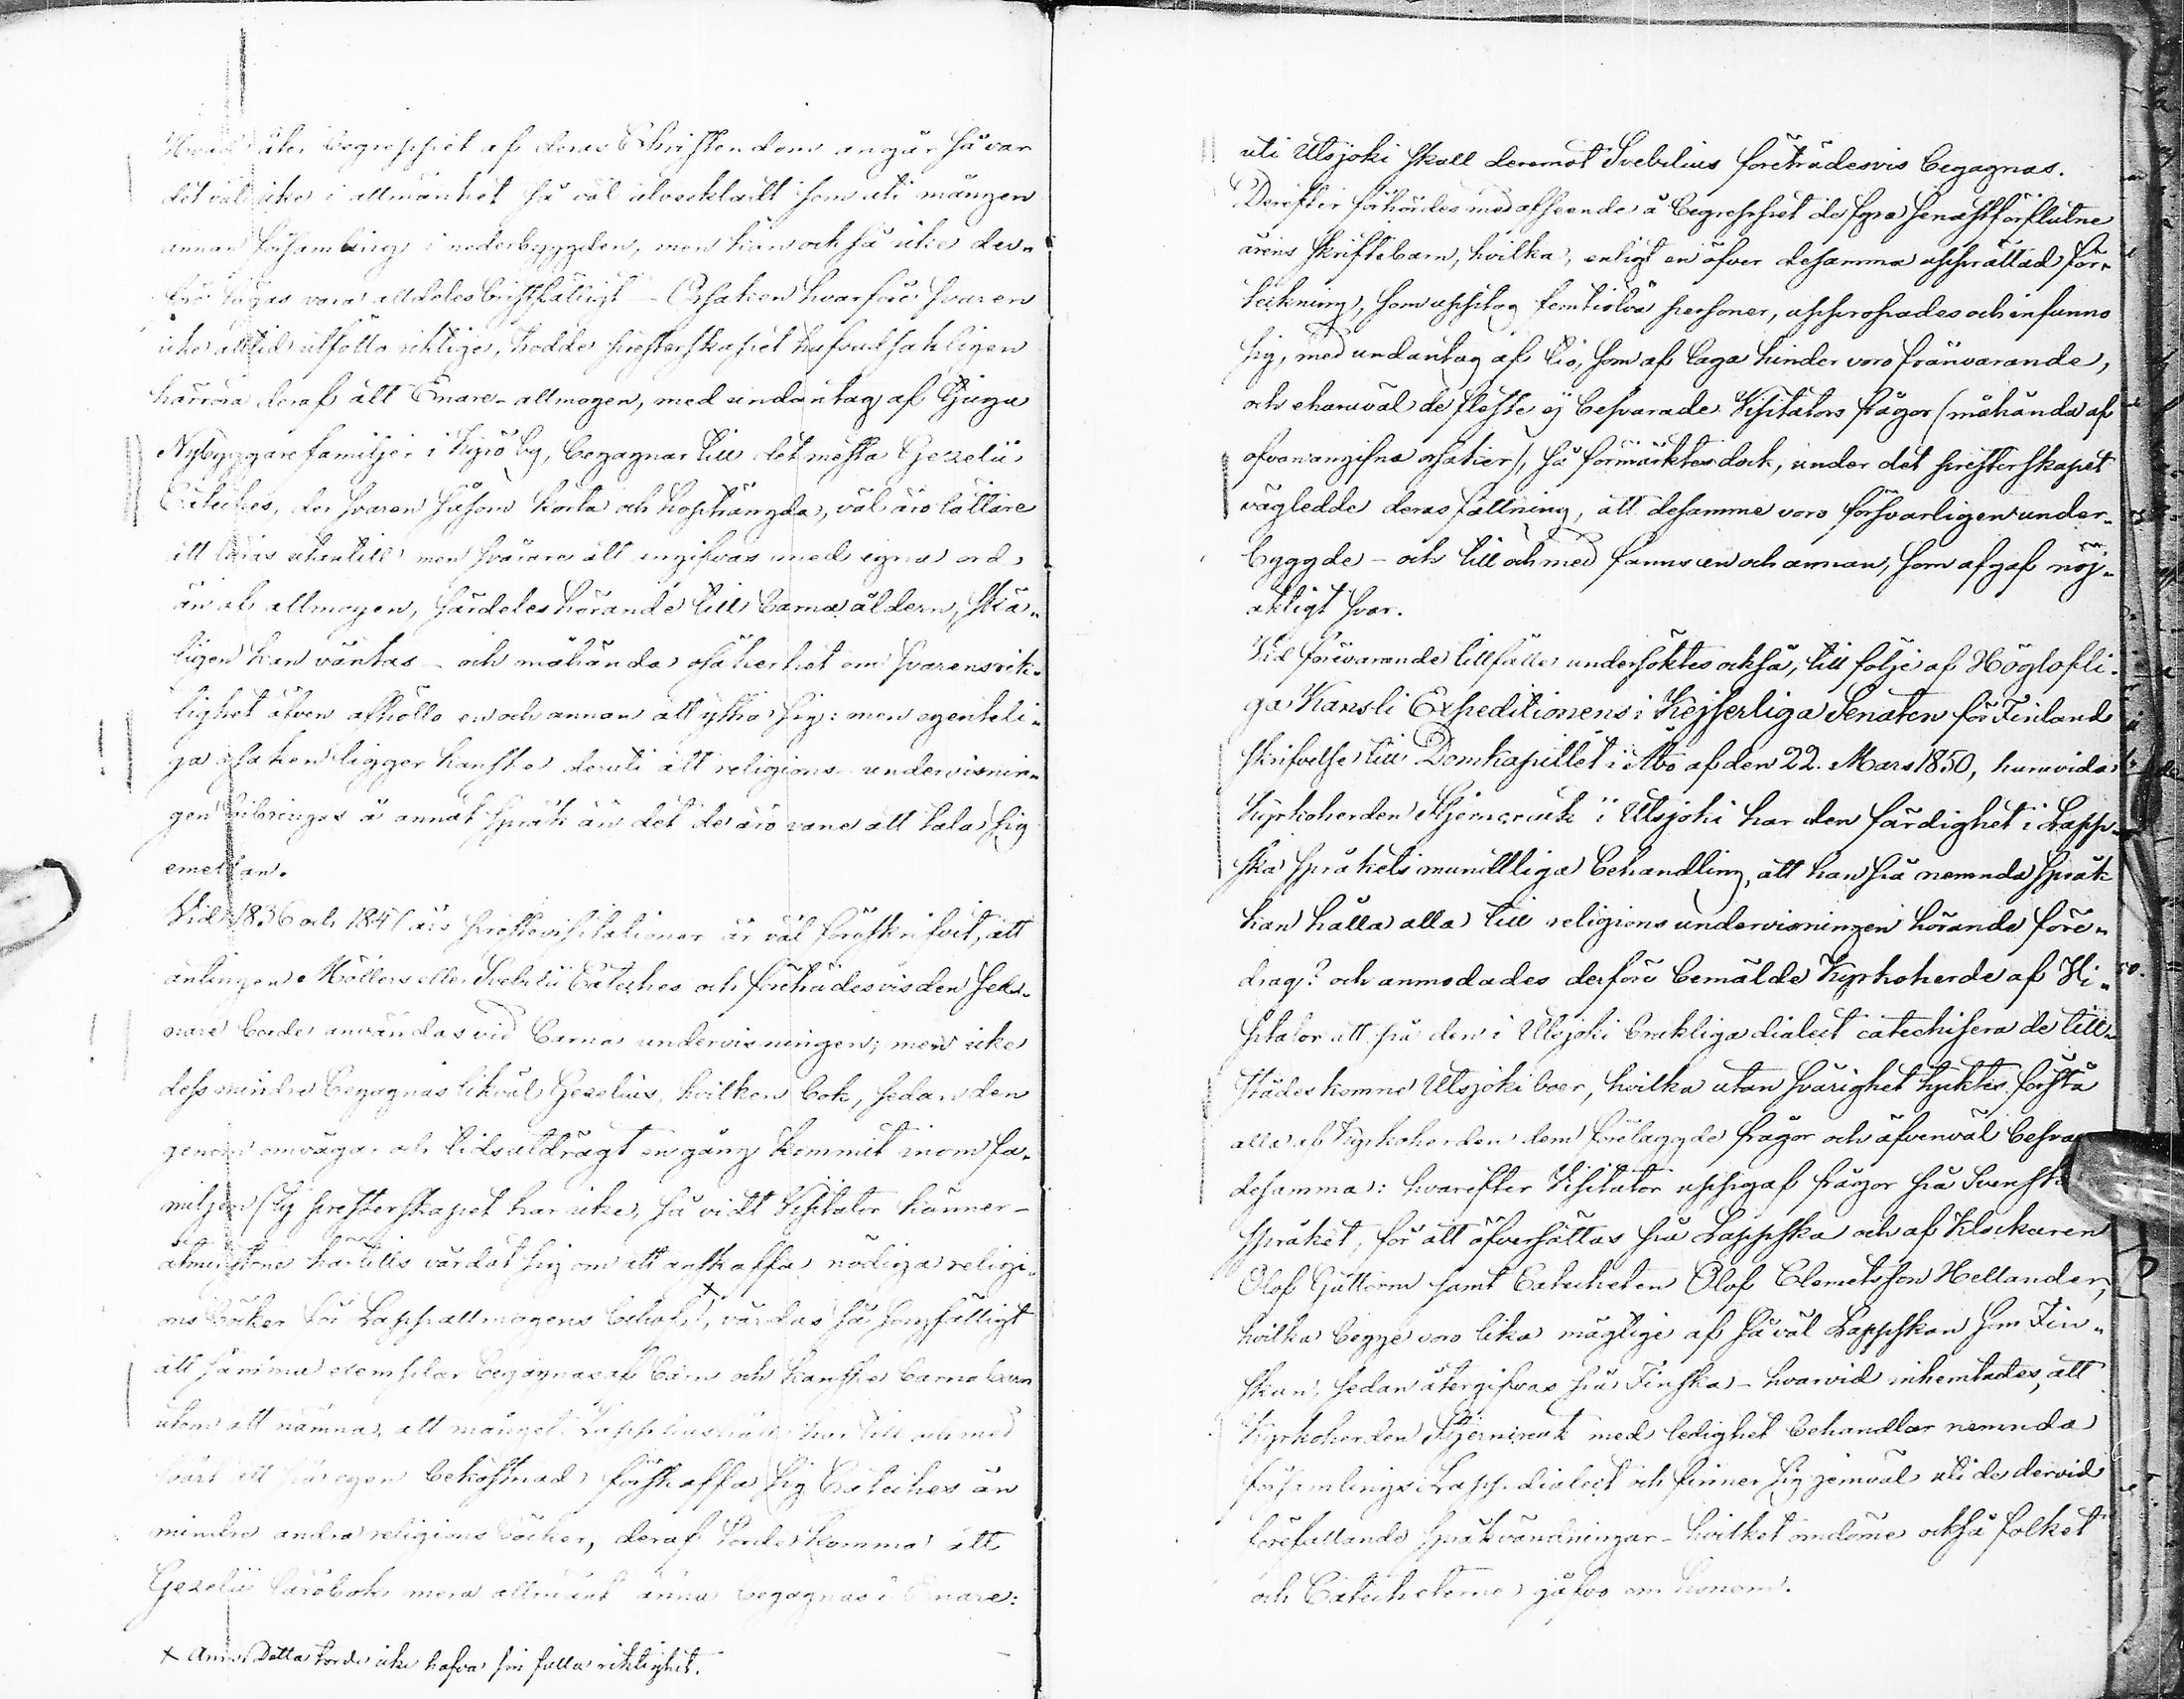 Hvad åter begreppet af deras Christendom angår så var
det väl icke i allmänhet så väl utveckladt som uti mången
annan församling i nederbyggden, men kan också icke der-
före sägas vara alldeles bristfälligt – Orsaken hvarföre svaren
icke alltid utföllo riktige, trodde presterskapet hufvudsakligen
härröra deraf att Enare-allmogen, med undantag af tjugu
Nybyggarefamiljer i Kyrö by, begagnar till det mesta Gezelii
Cateches, der svaren såsom korta och hopträngda, väl äro lättare
att läras utantill men svårare att angifvas med egna ord,
än af allmogen, särdeles hörande till barnaåldern, skä-
ligen kan väntas – och måhända osäkerhet om svarens rik-
tighet äfven afhöllo en och annan att yttra sig: men egenteli-
ga orsaken ligger kanske deruti att religions undervisnin-
gen bibringas å annat språk än det de äro vane att tala sig
emellan.
Vid 1836 och 1847 års prostevisitationer är väl föreskrifvit, att
antingen Möllers eller Svebilii Cateches och företrädesvis den sed-
nare borde användas vid barna undervisningen; men icke
dess mindre begagnas likväl Gezelius, hvilken bok, sedan den
genom omvägar och tidsutdrägt en gång kommit inom fa-
miljen (ty presterskapet har icke, så vidt Visitator känner –
åtminstone härtills vårdat sig om att anskaffa nödiga religi-
ons böcker för Lappallmogens behof) x, vårdas så sorgfälligt
att samma exemplar begagnas af barn och kanske barnabarn
utom att nämna, att mången har till och med
svårt att på egen bekostnad förskaffa sig Cateches än
mindre andra religions böcker, deraf torde komma att
Gezelii lärobok mera allmänt ännu begagnas i Enare:
x Anm. Detta torde icke hafva sin fulla riktighet.
uti Utsjoki skall deremot Svebilius företrädesvis begagnas.
Derefter förhördes med afseende å begreppet de fyra senastförflutne
årens skriftebarn, hvilka, enligt en öfver desamma upprättad för-
teckning, som upptog femtiotvå personer, uppropades och infunno
sig, med undantag af tio, som af laga hinder voro frånvarande,
och ehuruväl de fleste ej besvarade Visitators frågor (måhända af
ofvanangifna orsaker), så förmärktes dock, under det presterskapet
vägledde deras fattning, att desamme voro försvarligen under-
byggde – och till och med fanns en och annan, som afgaf nöj-
aktigt svar.
Vid förevarande tillfälle undersöktes också, till följe af Höglofli-
ga Kansli Expeditionens i Kejserliga Senaten för Finland
skrifvelse till Domkapitlet i Åbo af den 22. Mars 1850, huruvida
Kyrkoherden Stjerncreutz i Utsjoki har den färdighet i Lapp-
ska språkets mundtliga behandling, att han på nemnda språk
kan hålla alla till religions undervisningen hörande före-
drag? och anmodades derföre bemälde Kyrkoherde af Vi-
sitator att på den i Utsjoki brukliga dialect catechisera de till-
städes komne Utsjoki boer, hvilka utan svårighet tycktes förstå
alla af Kyrkoherden dem förelaggde frågor och äfvenväl besva
desamma: hvarefter Visitator uppgaf frågor på Svensk
språket, för att öfversättas på Lappska och af Klockaren
Olof Guttorm samt Catecheten Olof Clemetsson Hellander,
hvilka begge voro lika mägtige af såväl Lappskan som Fin-
skan, sedan återgifvas på Finska – hvarvid inhemtades, att
Kyrkoherden Stjerncreutz med ledighet behandlar nemnda
församlings Lapp dialect och finner sig jemväl uti de dervid
förefallande språkvändningar – hvilket omdöme också folket
och Catecheterne gåfvo om honom.